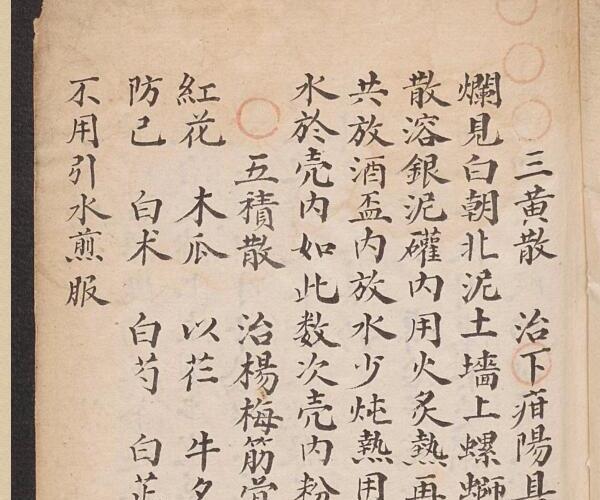 三黃散 治下疳陽具
爛見白朝北泥土墻上螺螄
散溶銀泥礶内用火炙熱再
共放酒盃内放水少炖熱用
水於壳内如此数次壳内粉
五積散 治楊梅筋骨
紅花 木瓜 以苡 牛
防己 白术 白芍 白芷
不用引水煎服